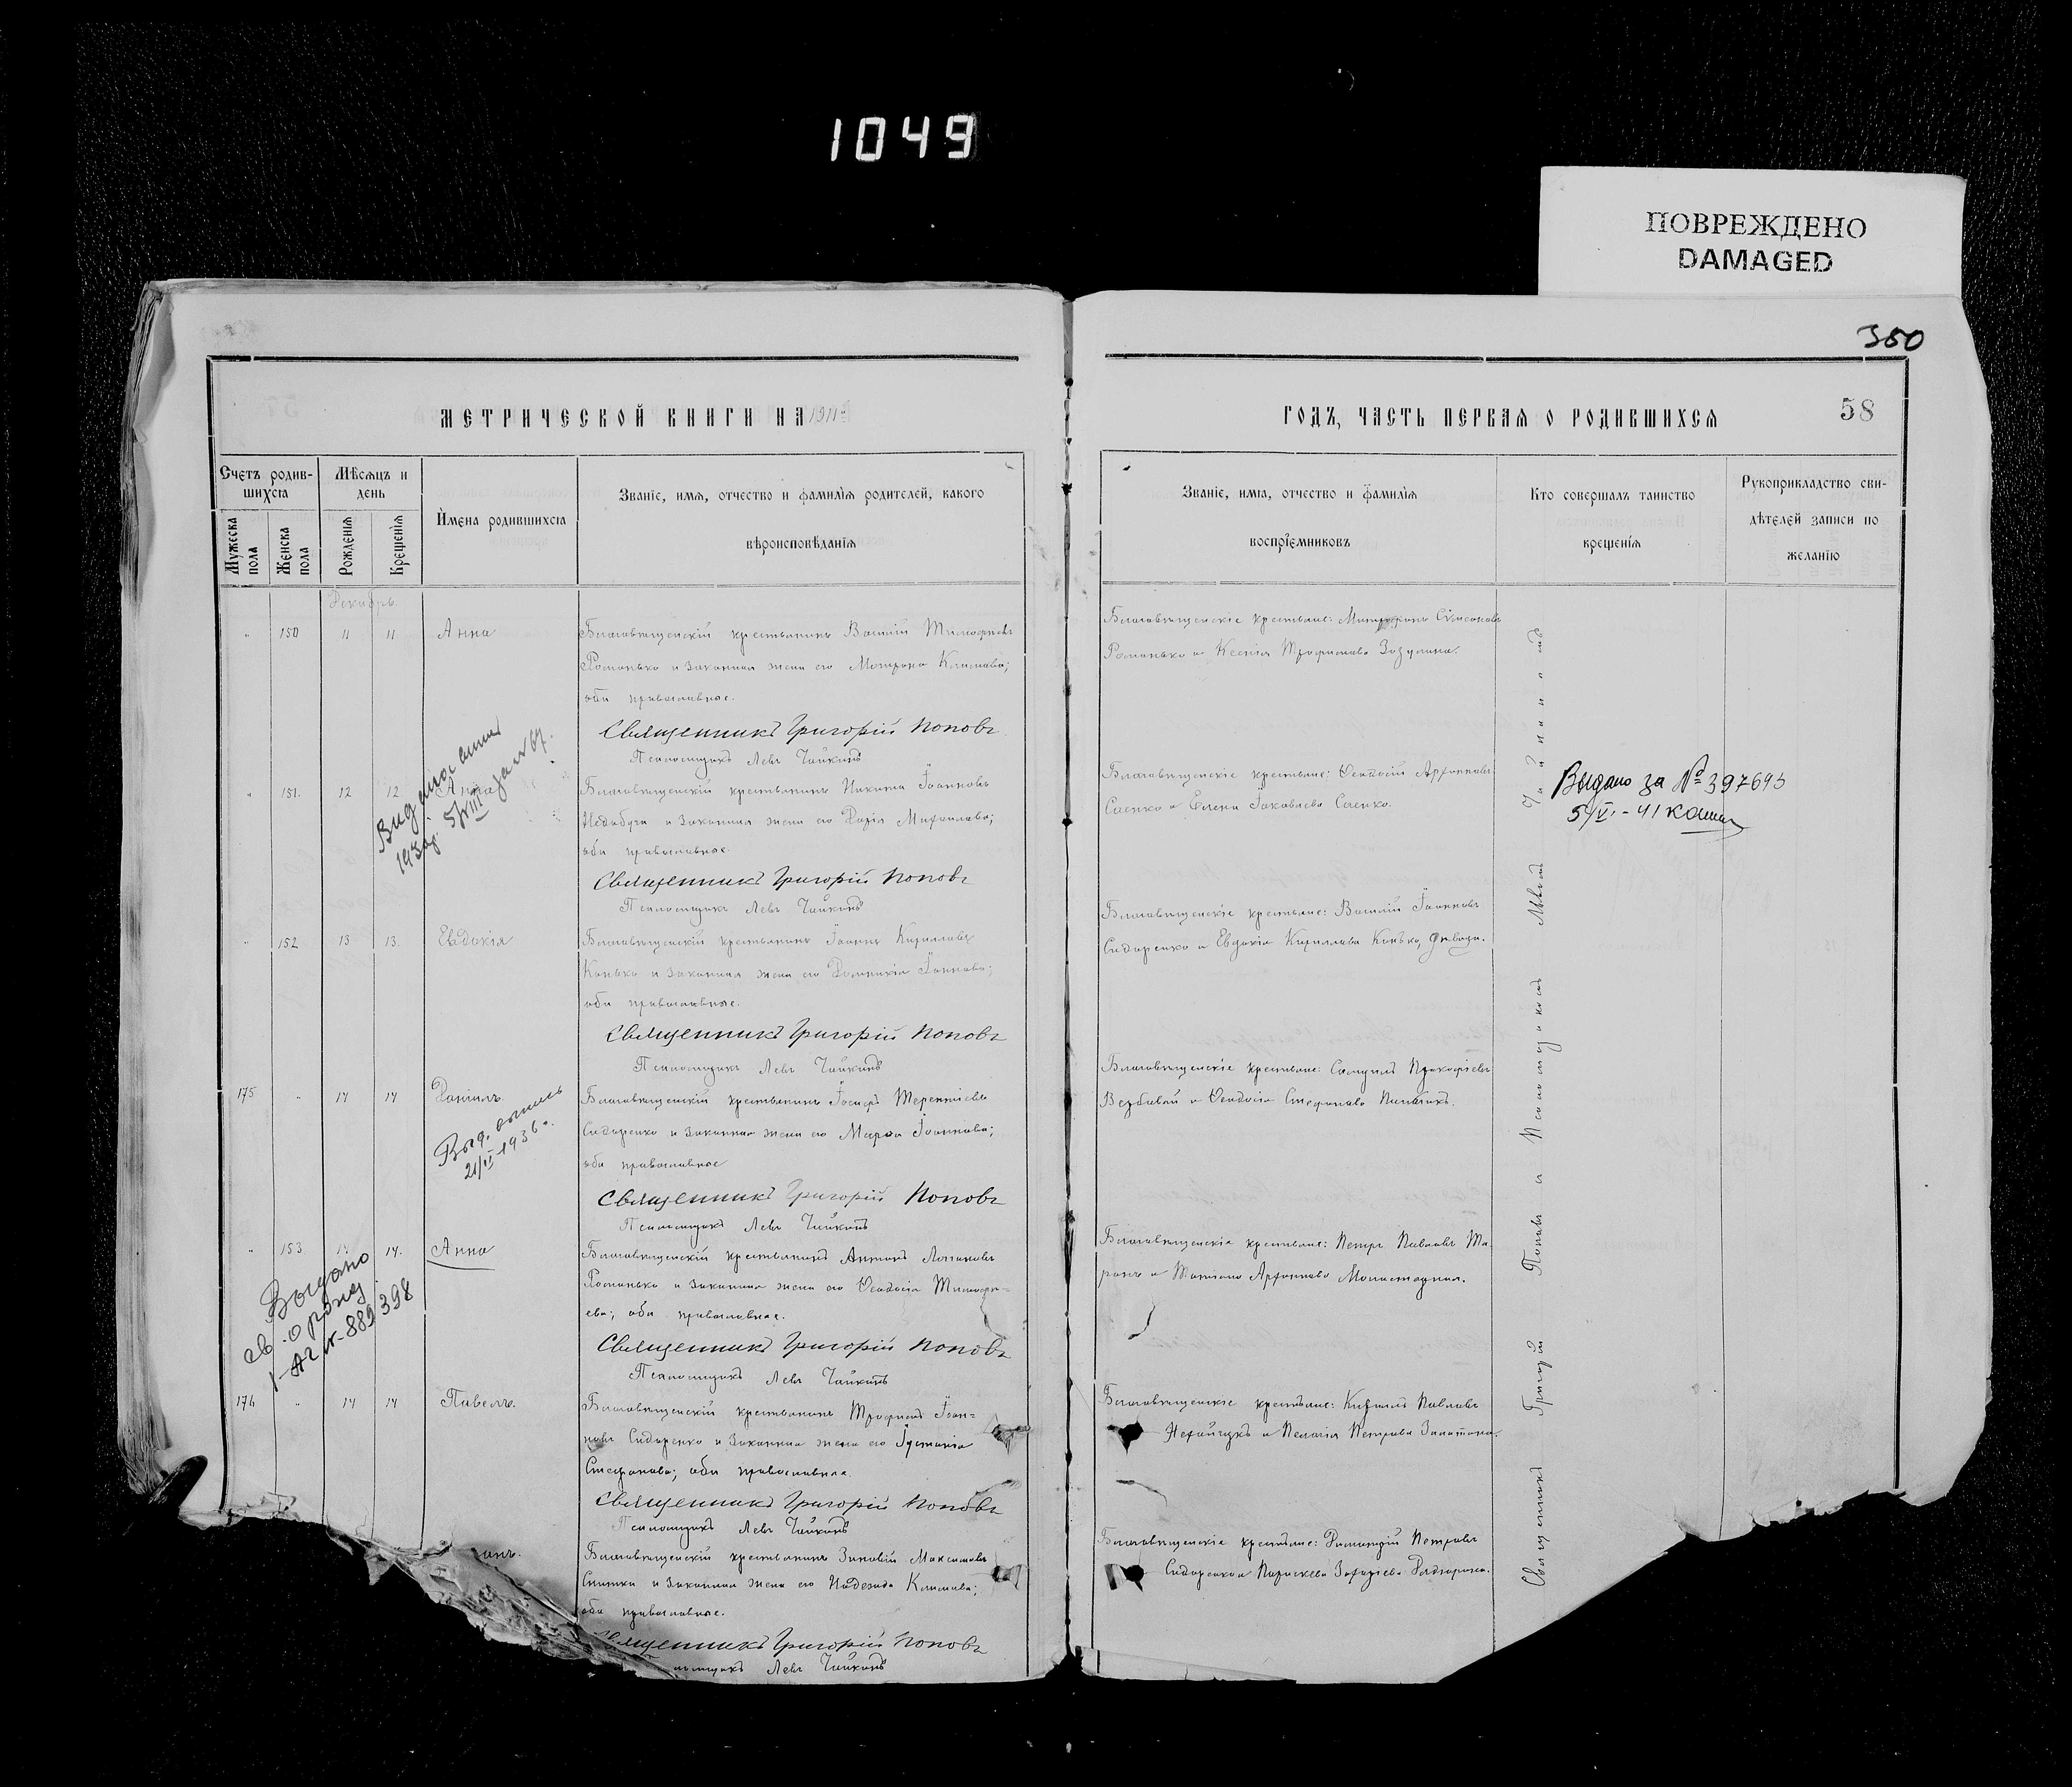 1049
ПОВРЕЖДЕНО
DAMAGED
350
МЕТРИЧЕСКОЙ КНИГИ НА 1911
ГОДЪ, ЧАСТЬ ПЕРВАЯ О РОДИВШИХСЯ
58
Счетъ родив-
шихся
Мужеска
пола
Женска
пола
Мѣсяцъ и
день
Рожденія
Крещенія
Имена родившихся
Званіе, имя, отчество и фамилія родителей, какого
вѣроисповѣданія
Званіе, имя, отчество и фамилія
воспріемниковъ
Кто совершалъ таинство
крещенія
Рукоприкладство сви-
дѣтелей записи по
желанію
Декабрь.
" 150 11 11 Анна
Благовѣщенскій крестьянинъ Василій Тимофеевъ
Романько и законная жена его Матрона Климова;
оба православные.
Священникъ Григорій Поповъ
Псаломщикъ Левъ Чайкинъ
Благовѣщенскіе крестьяне: Митрофанъ Симеоновъ
Романько и Ксенія Трофимова Зозулина.
" 151. 12 12 Анна
Благовѣщенскій крестьянинъ Никита Іоанновъ
Недобуга и законная жена его Дарія Михайлова;
оба православные.
Священникъ Григорій Поповъ
Псаломщикъ Левъ Чайкинъ
Благовѣщенскіе крестьяне: Ѳеодосій
Саенко и Елена Іаковлева Саенко.
Выдано за № 397693
5/VI - 41
" 152 13 13. Евдокія
Благовѣщенскій крестьянинъ Іоаннъ Кирилловъ
Конько и законная жена его Домникія Іоаннова;
оба православные.
Священникъ Григорій Поповъ
Псаломщикъ Левъ Чайкинъ
Благовѣщенскіе крестьяне: Василій Іоанновъ
Сидоренко и Евдокія Кириллова Конько, дѣвица.
175 " 14 14 Даніилъ
Выд. выпись
21/VI-1936
Благовѣщенскій крестьянинъ Іосифъ Терентіевъ
Сидоренко и законная жена его Марѳа Іоаннова;
оба православные
Священникъ Григорій Поповъ
Псаломщикъ Левъ Чайкинъ
Благовѣщенскіе крестьяне: Самуилъ Прокофіевъ
Вербовый и Ѳеодосія Стефанова
" 153 14. Анна
Выдано
св. о рожд
889398
Благовѣщенскій крестьянинъ Антонъ
Романько и законная жена его Ѳеодосія Тимофе-
ева; оба православные.
Священникъ Григорій Поповъ
Псаломщикъ Левъ Чайкинъ
Благовѣщенскіе крестьяне: Петръ Павловъ
и Татіана
176 " 14 14 Павелъ.
Благовѣщенскій крестьянинъ Трофимъ Іоан-
новъ Сидоренко и законная жена его Іустинія
Стефанова; оба православные.
Священникъ Григорій Поповъ
Псаломщикъ Левъ Чайкинъ
Благовѣщенскіе крестьяне: Кириллъ Павловъ
и Пелагія Петрова
Благовѣщенскій крестьянинъ Зиновій Максимовъ
и законная жена его Надежда Климова;
оба православные.
Священникъ Григорій Поповъ
Левъ Чайкинъ
Благовѣщенскіе крестьяне: Димитрій Петровъ
Сидоренко и Параскева Захаріева
Священникъ Григорій Поповъ и Псаломщикъ Левъ Чайкинъ